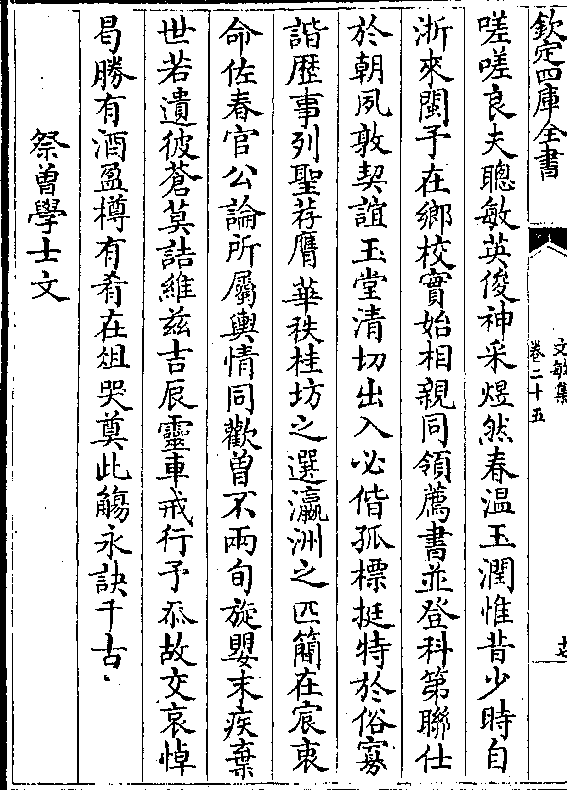 欽定四庫全書
文敏集
卷二十五
嗟嗟良夫聰敏英俊神采煜然春温玉潤惟昔少時自
浙來閩予在鄉校實始相親同領薦書並登科第聯仕
於朝夙敦契誼玉堂清切出入必偕孤標挺特於俗寡
諧歴事列聖荐膺華秩桂坊之選瀛洲之匹簡在宸衷
命佐春官公論所屬輿情同歡曽不兩旬旋嬰末疾棄
世若遺彼蒼莫詰維兹吉辰靈車戒行予忝故交哀悼
曷勝有酒盈樽有肴在俎哭奠此觴永訣千古
祭曽學士文